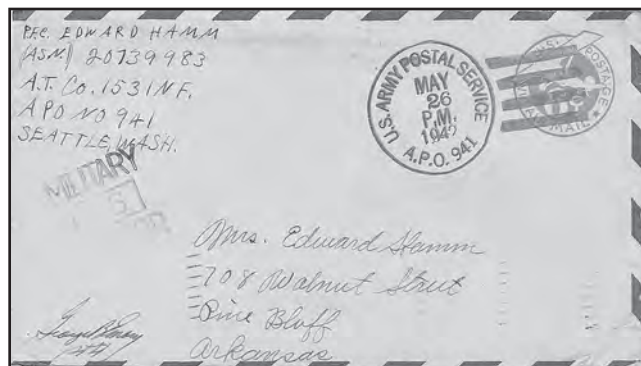 PFC. EDWARD HAMM
(ASN.) 20739983
A.T. Co. 153 INF.
APO NO 941
SEATTLE, WASH.
U.S. ARMY POSTAL SERVICE
MAY
26
P.M.
1942
A.P.O. 941
POSTAGE
MAIL
MILITARY
Mrs. Edward Hamm
708 Walnut Street
Pine Bluff
Arkansas